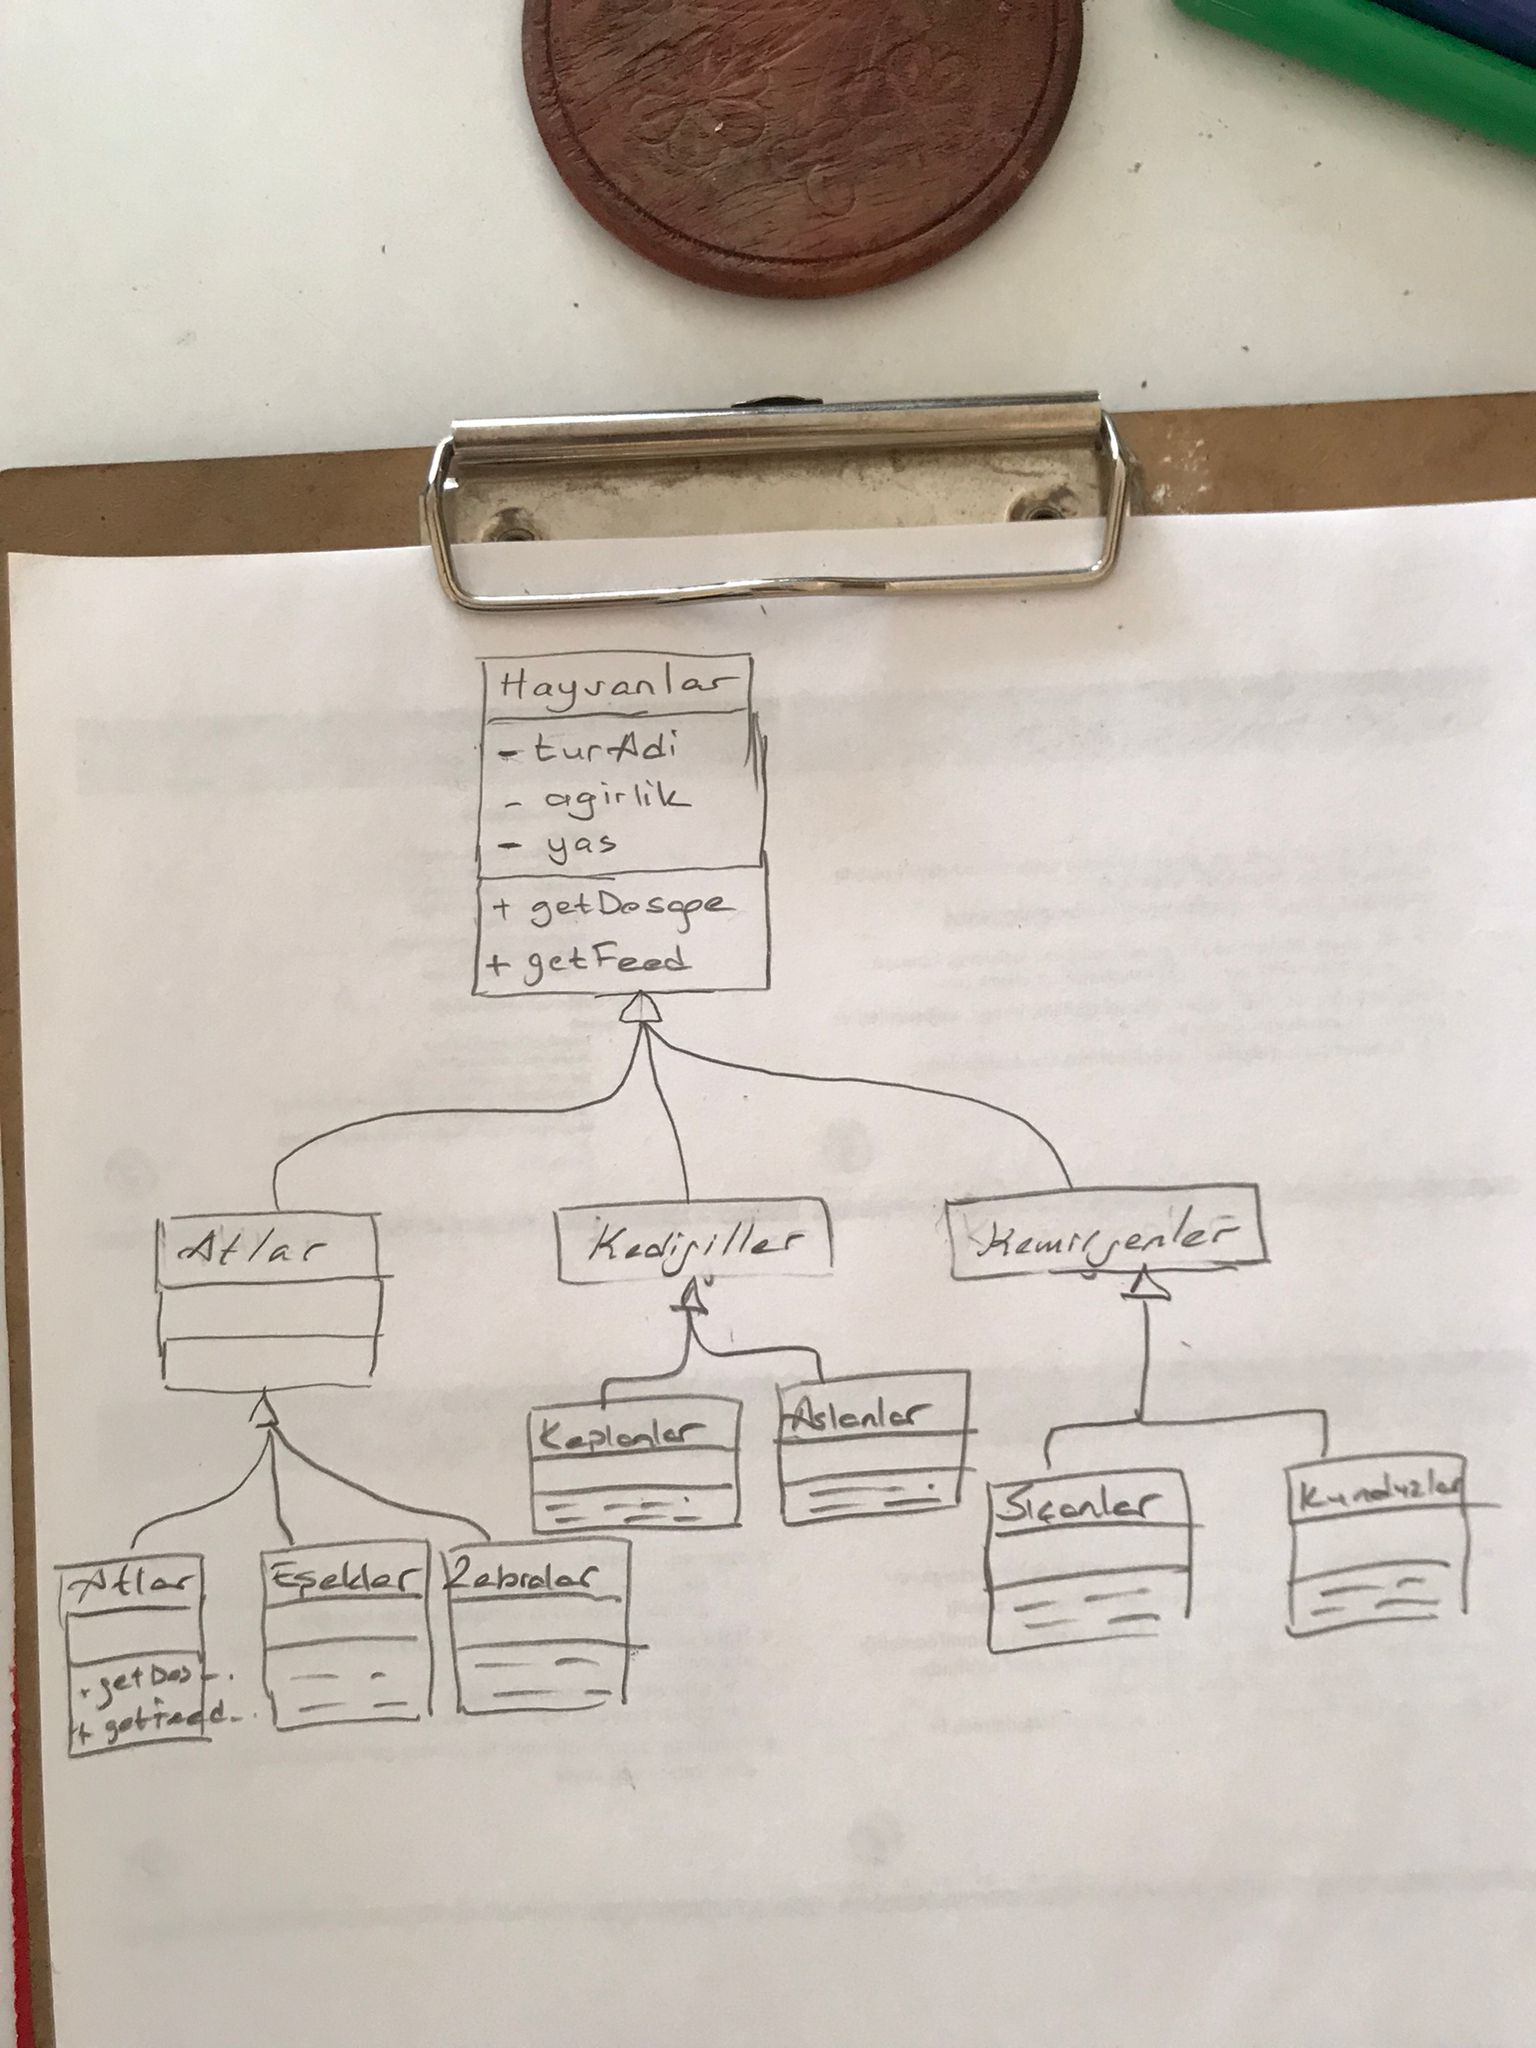 Hayvanlar
- turAdi
- agirlik
- yas
+ getDosage
+ getFeed
Atlar
Kedigiller
Kemirgenler
Kaplanlar
Aslanlar
Sıçanlar
Kunduzlar
Atlar
Eşekler
Zebralar
+ getDos-..
+ getFeed-..